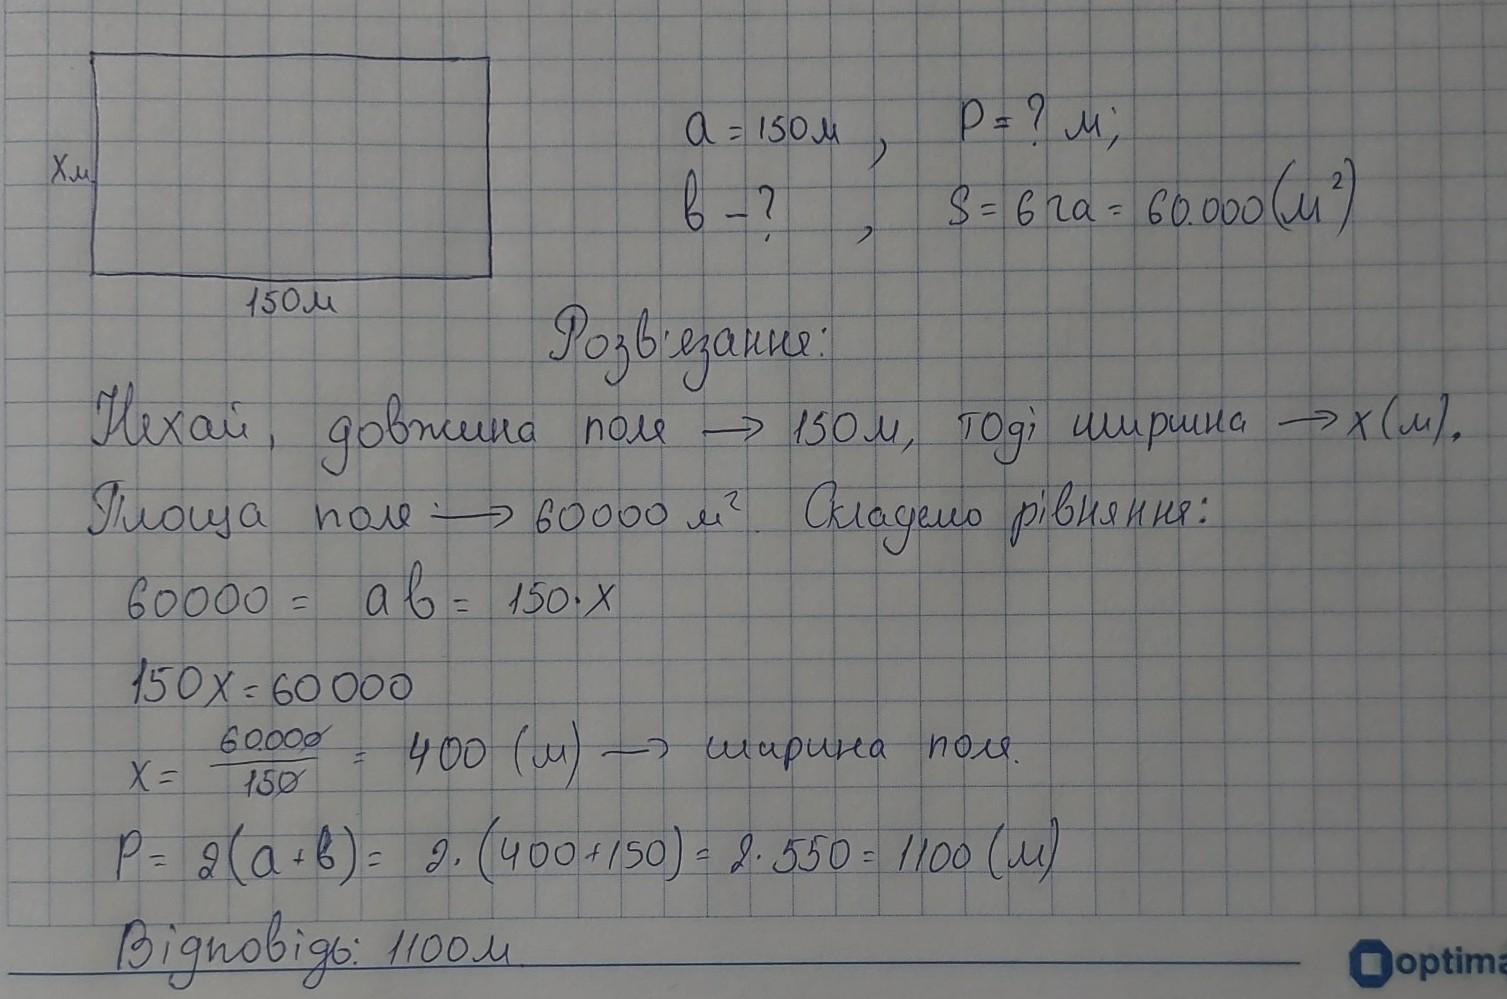 a = 150м , P = ? м;
xм
в – ? , S = 6 га = 60.000 (м²)
150м
Розв'язання:
Нехай, довжина поля → 150м, тоді ширина → x (м).
Площа поля → 60000 м². Складемо рівняння:
60000 = aв = 150·x
150x = 60000
x = 60000/150 = 400 (м) → ширина поля.
P = 2(a+в) = 2·(400+150) = 2·550 = 1100 (м)
Відповідь: 1100м
optima